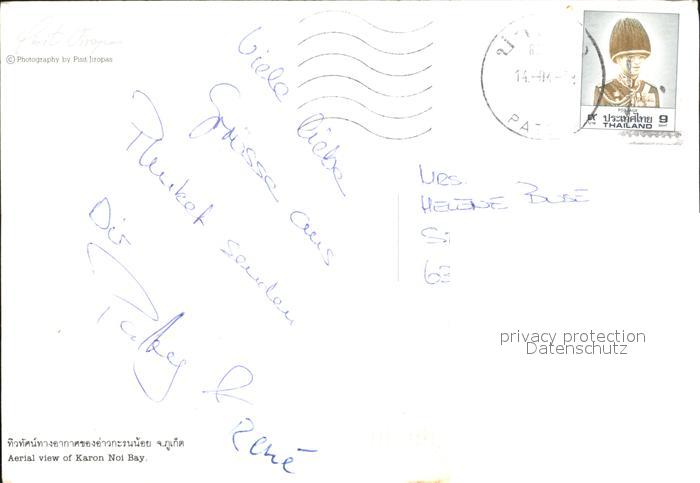 Pisit Jiropas
© Photography by Pisit Jiropas
Viele liebe
Grüsse aus
Phuket senden
Dir
René
ทิวทัศน์ทางอากาศของอ่าวกะรนน้อย จ.ภูเก็ต
Aerial view of Karon Noi Bay.
PAT
POSTAGE
ประเทศไทย 9
THAILAND
Mrs.
HELENE BUSE
Si
63
privacy protection
Datenschutz